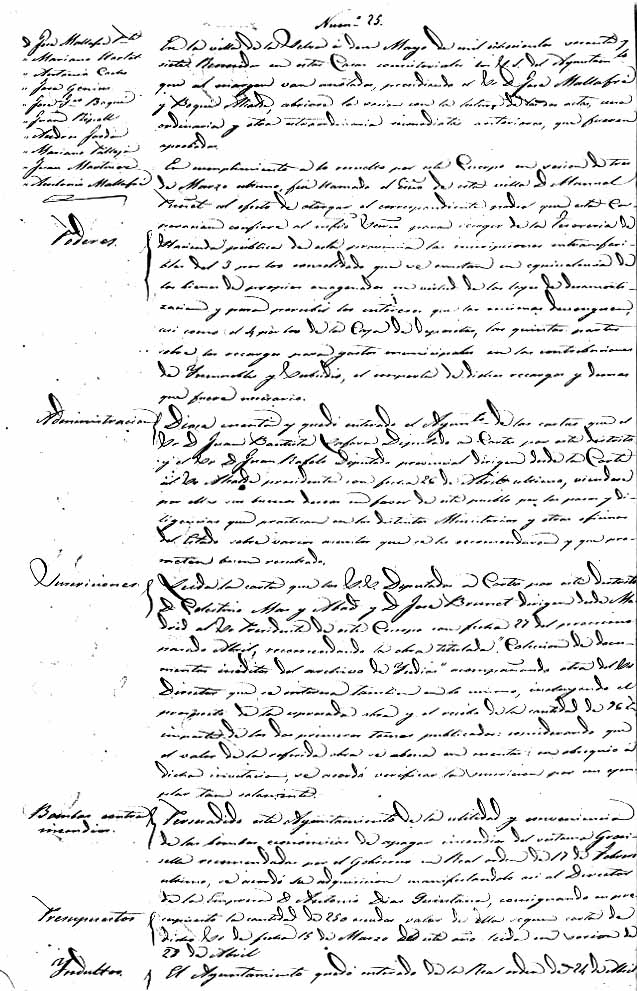 Num.º 25.
D. José Mallafré P.te
" Mariano
" Antonio
" José
" José
" Juan Ripoll
" Andreu
" Mariano
" Juan
" Antonio Mallafré
En la villa de la Selva á dos Mayo de mil ochocientos sesenta y
siete Reunidos en estas Casas consistoriales los S.S. del Ayuntam.to
que al margen van anotados, presidiendo el Sr. D. José Mallafré
y Bogué Alcalde abriose la sesion con la lectura de las actas, una
ordinaria y otra extraordinaria inmediatas anteriores, que fueron
aprobadas.
Poderes.
En cumplimiento a lo resuelto por este Cuerpo en sesion de tres
de Marzo ultimo, fué llamado el Esño de esta villa D. Manuel
al efecto de otorgar el correspondiente poder que esta Cor-
poracion confiere al para recoger de la Tesoreria de
Hacienda pública de esta provincia las inscripciones intransferi-
bles del 3 por 100 consolidado que se emitan en equivalencia de
los bienes de propios enagenados en virtud de las leyes de desamorti-
zacion y para percibir los intereses que las mismas devenguen,
asi como el 4 por 100 de la Caja de Depositos, las quintas partes
sobre los recargos para gastos municipales en las contribuciones
de Inmuebles y Subsidio, el importe de dichos recargos y demas
que fuere necesario.
Administracion
Diose cuenta y quedó enterado el Ayunt.º de las cartas que el
Sr. D. Juan Bautista Diputado á Cortes por este distrito
y el Sr. D. Juan Diputado provincial dirigen desde la Corte
al Sr. Alcalde presidente con fecha 26 de Abril ultimo, viendose
por ellas sus buenos deseos en favor de este pueblo por los pasos y di-
ligencias que practican en los distintos Ministerios y otras oficinas
del Estado sobre varios asuntos que se les recomendaron y que pro-
meten buen resultado.
Suscriciones
Leida la carta que los S.S. Diputados á Cortes por este distrito
D. Celestino Mas y Abad y D. José Brunet dirigen desde Ma-
drid al Sr. Presidente de este Cuerpo con fecha 27 del proximo
pasado Abril, recomendando la obra titulada "Coleccion de docu-
mentos inéditos del archivo de Indias" acompañando otra del Sr.
Director que se interesa tambien en lo mismo, incluyendo el
prospecto de la expresada obra y el recibo de la cantidad de 96
importe de los dos primeros tomos publicados: considerando que
el valor de la referida obra se abona en cuenta: en obsequio á
dicha invitacion, se acordó verificar la suscricion por un ejem-
plar tan solamente.
Bombas contra
incendios.
Persuadido este Ayuntamiento de la utilidad y conveniencia
de las bombas economicas de apagar incendios del sistema
recomendadas por el Gobierno en Real orden de 17 de Febrero
ultimo, se acordó su adquisicion manifestandolo asi al Director
de la Empresa D. Antonio Dias Quintana, consignando en pre-
Presupuestos
supuesto la cantidad de 250 escudos valor de ella segun carta de
dicho Sr. de fecha 15 de Marzo de este año leida en sesion de
28 de Abril
Indultos.
El Ayuntamiento quedó enterado de la Real orden de 24 de Abril